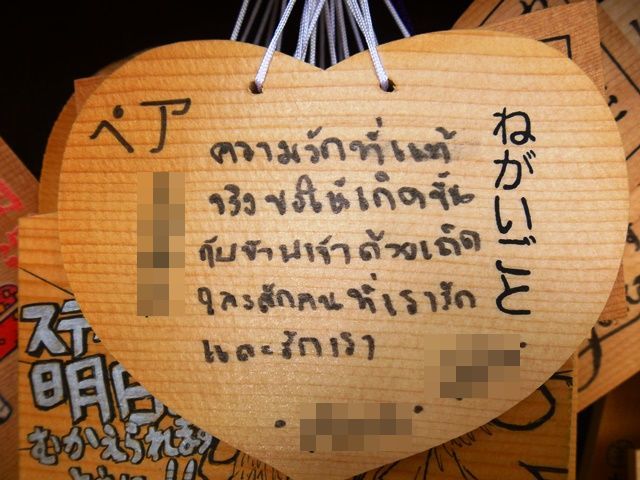 ペア
ねがいごと
ความรักที่แท้
จริงขอให้เกิดขึ้น
กับข้าพเจ้าด้วยเถิด
ใครสักคนที่เรารัก
และรักเรา
ステ
明日
むかえられます